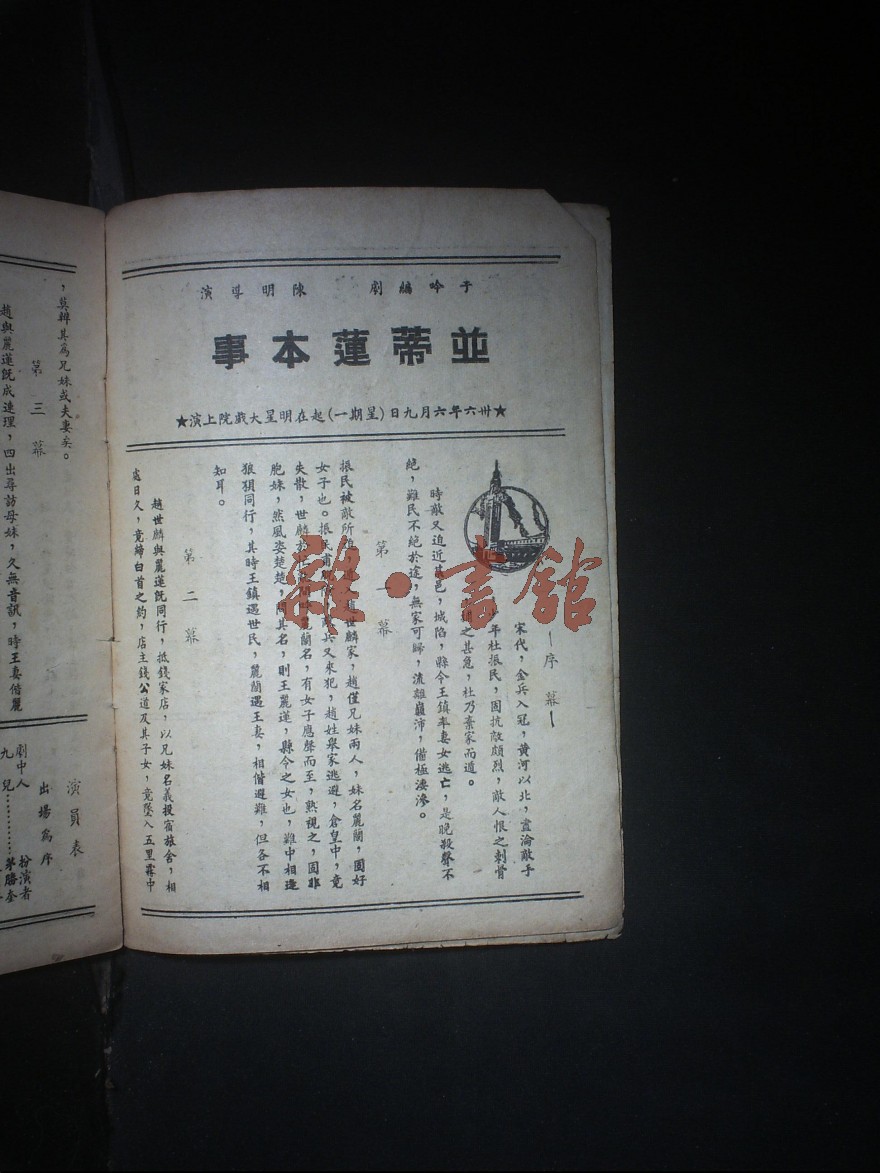 于吟編劇　陳明導演
並蒂蓮本事
★卅六年六月九日(星期一)起在明星大戲院上演★
—序幕—
宋代，金兵入寇，黃河以北，盡淪敵手
年杜振民，因抗敵頗烈，敵人恨之刺骨
之甚急，杜乃棄家而遁。
時敵又迫近邑，城陷，縣令王鎮率妻女逃亡，是晚殺聲不
絕，難民不絕於途，無家可歸，流離巔沛，備極淒滲。
第一幕
振民被敵所　趙世麟家，趙僅兄妹兩人，妹名麗蘭，固好
女子也。振民甫　兵又來犯，趙姓舉家逃避，倉皇中，竟
失散，世麟於　麗蘭名，有女子應聲而至，熟視之，固非
胞妹，然風姿楚楚，問其名，則王麗蓮，縣令之女也，難中相逢
狼狽同行，其時王鎮遇世民，麗蘭遇王妻，相偕避難，但各不相
知耳。
第二幕
趙世麟與麗蓮旣同行，抵錢家店，以兄妹名義投宿旅舍，相
處日久，竟締白首之約，店主錢公道及其子女，竟墜入五里霧中
，莫辨其為兄妹或夫妻矣。
第三幕
趙與麗蓮旣成連理，四出尋訪母妹，久無音訊，時王妻偕麗
演員表
出場為序
劇中人　扮演者
九兒…………茅勝奎
雜·書館